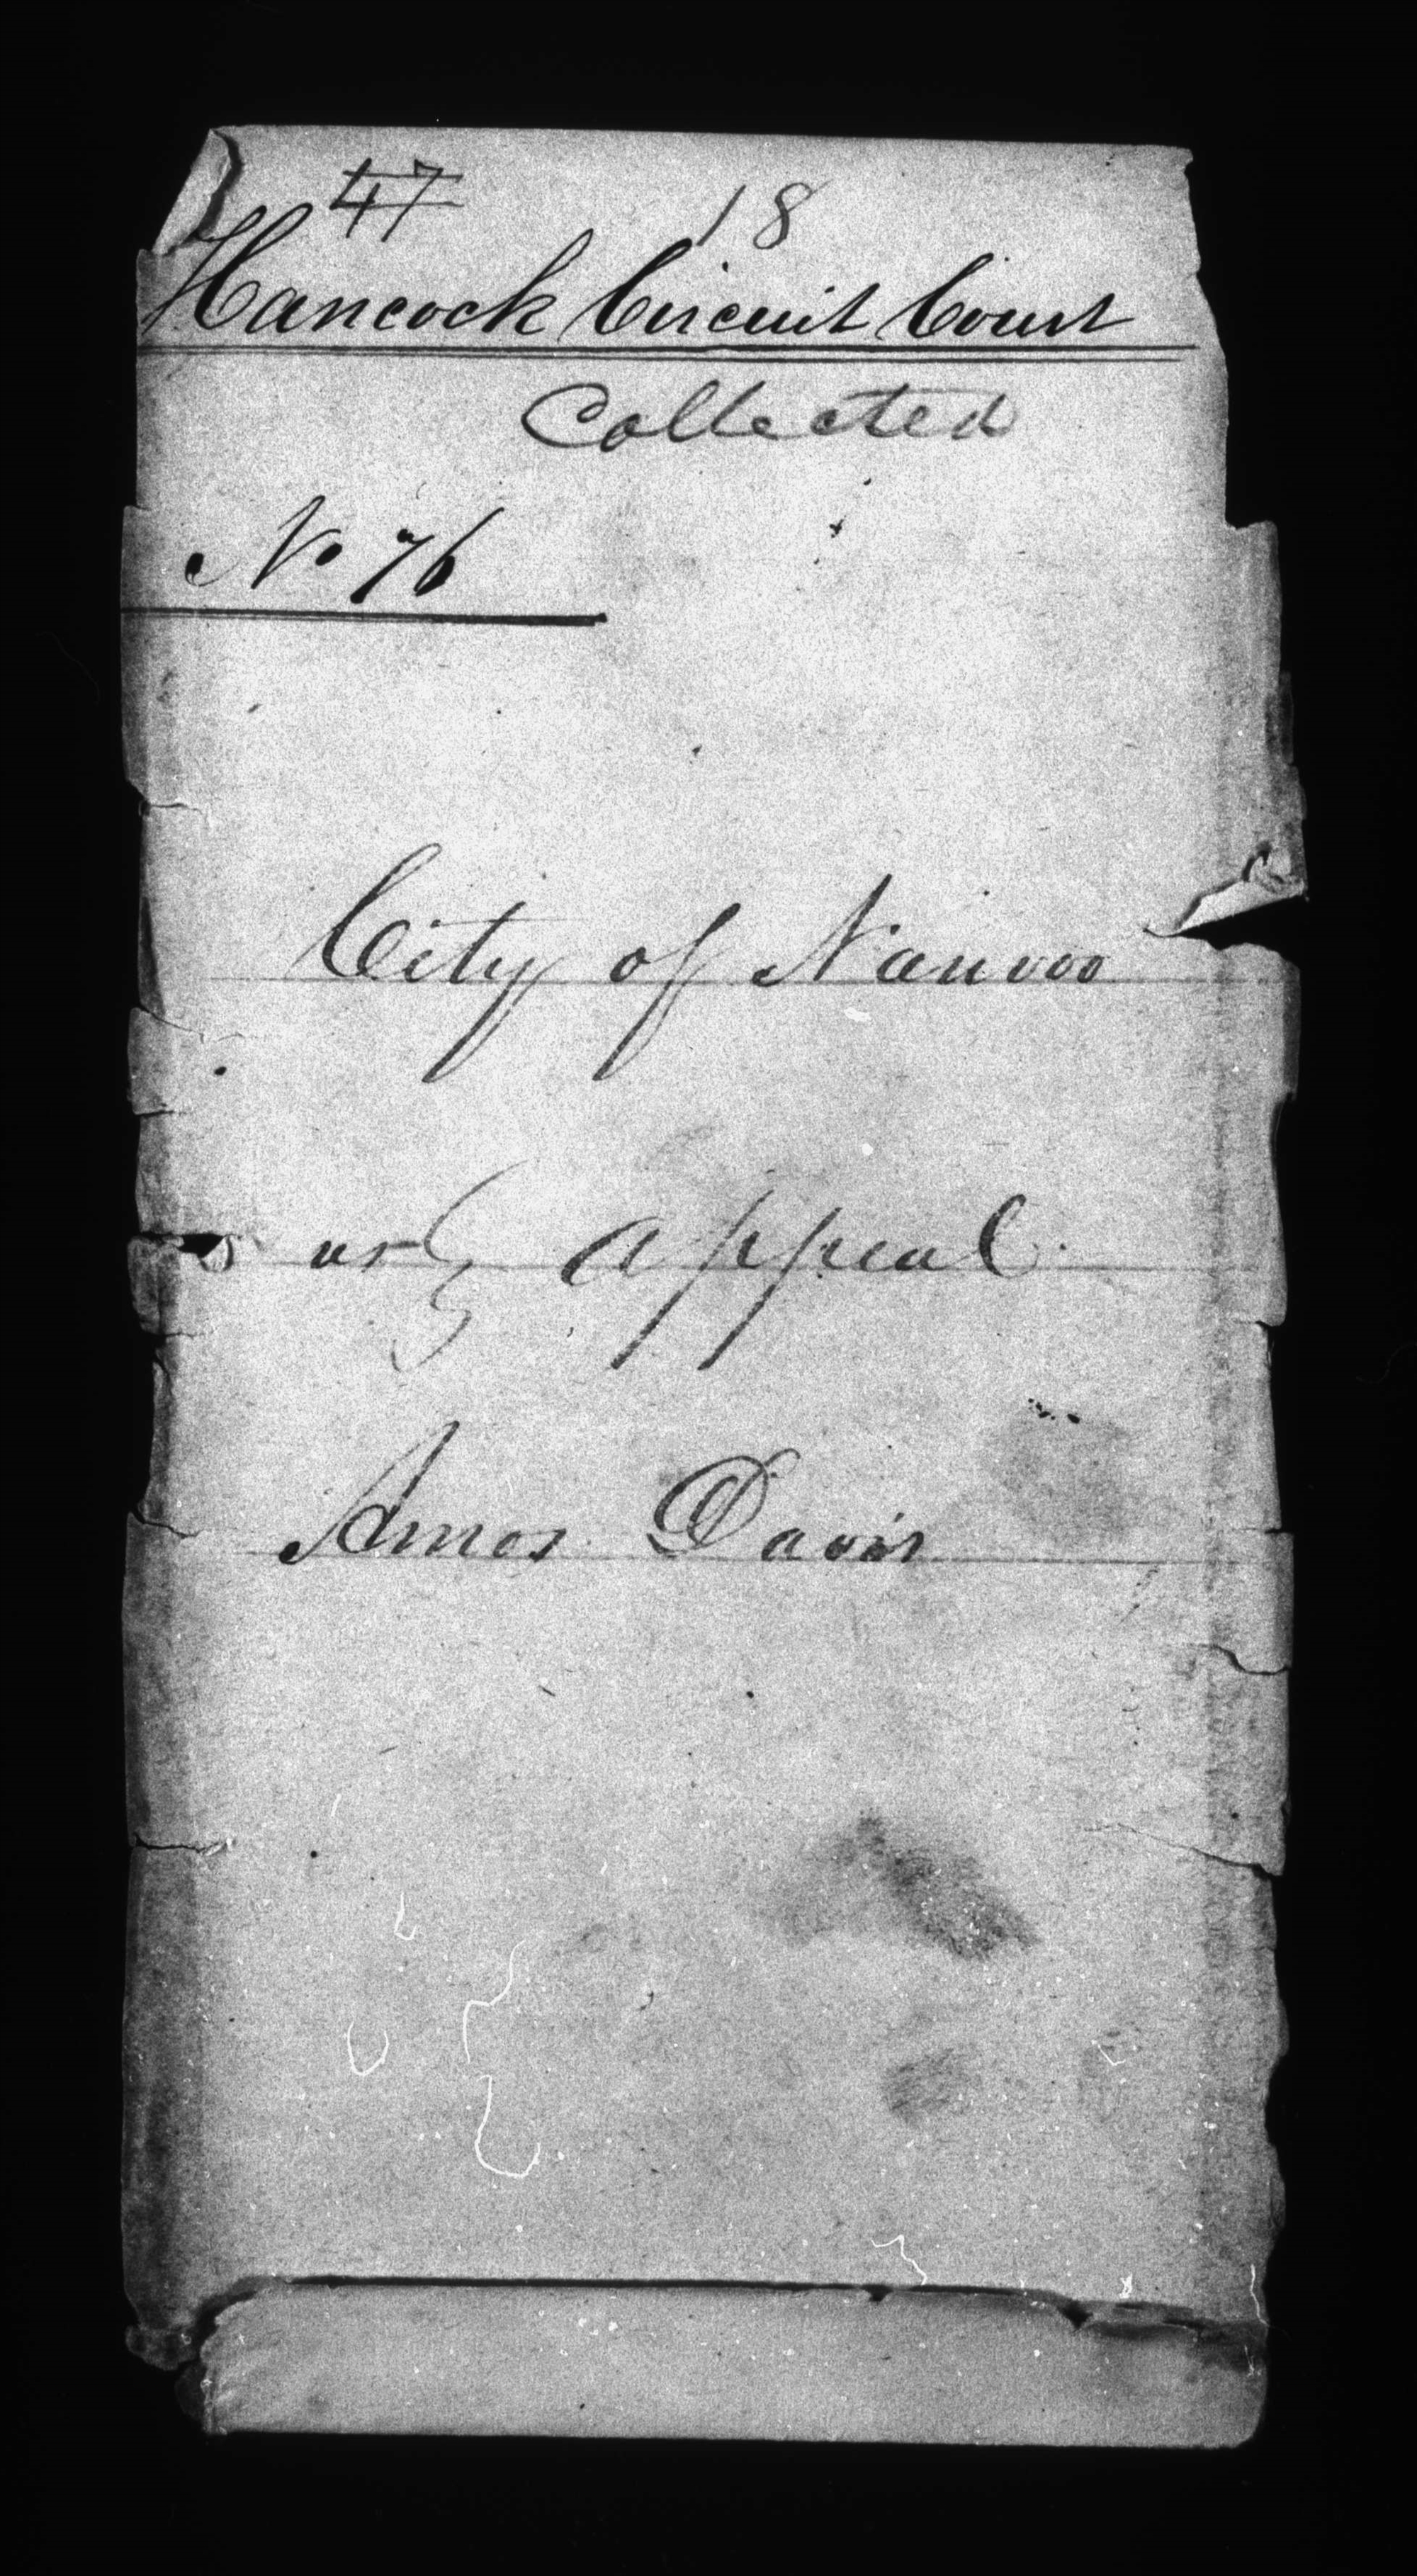 47 18
Hancock Circuit Court
Collected
No 76
City of Nauvoo
vs } Appeal
Amos Davis